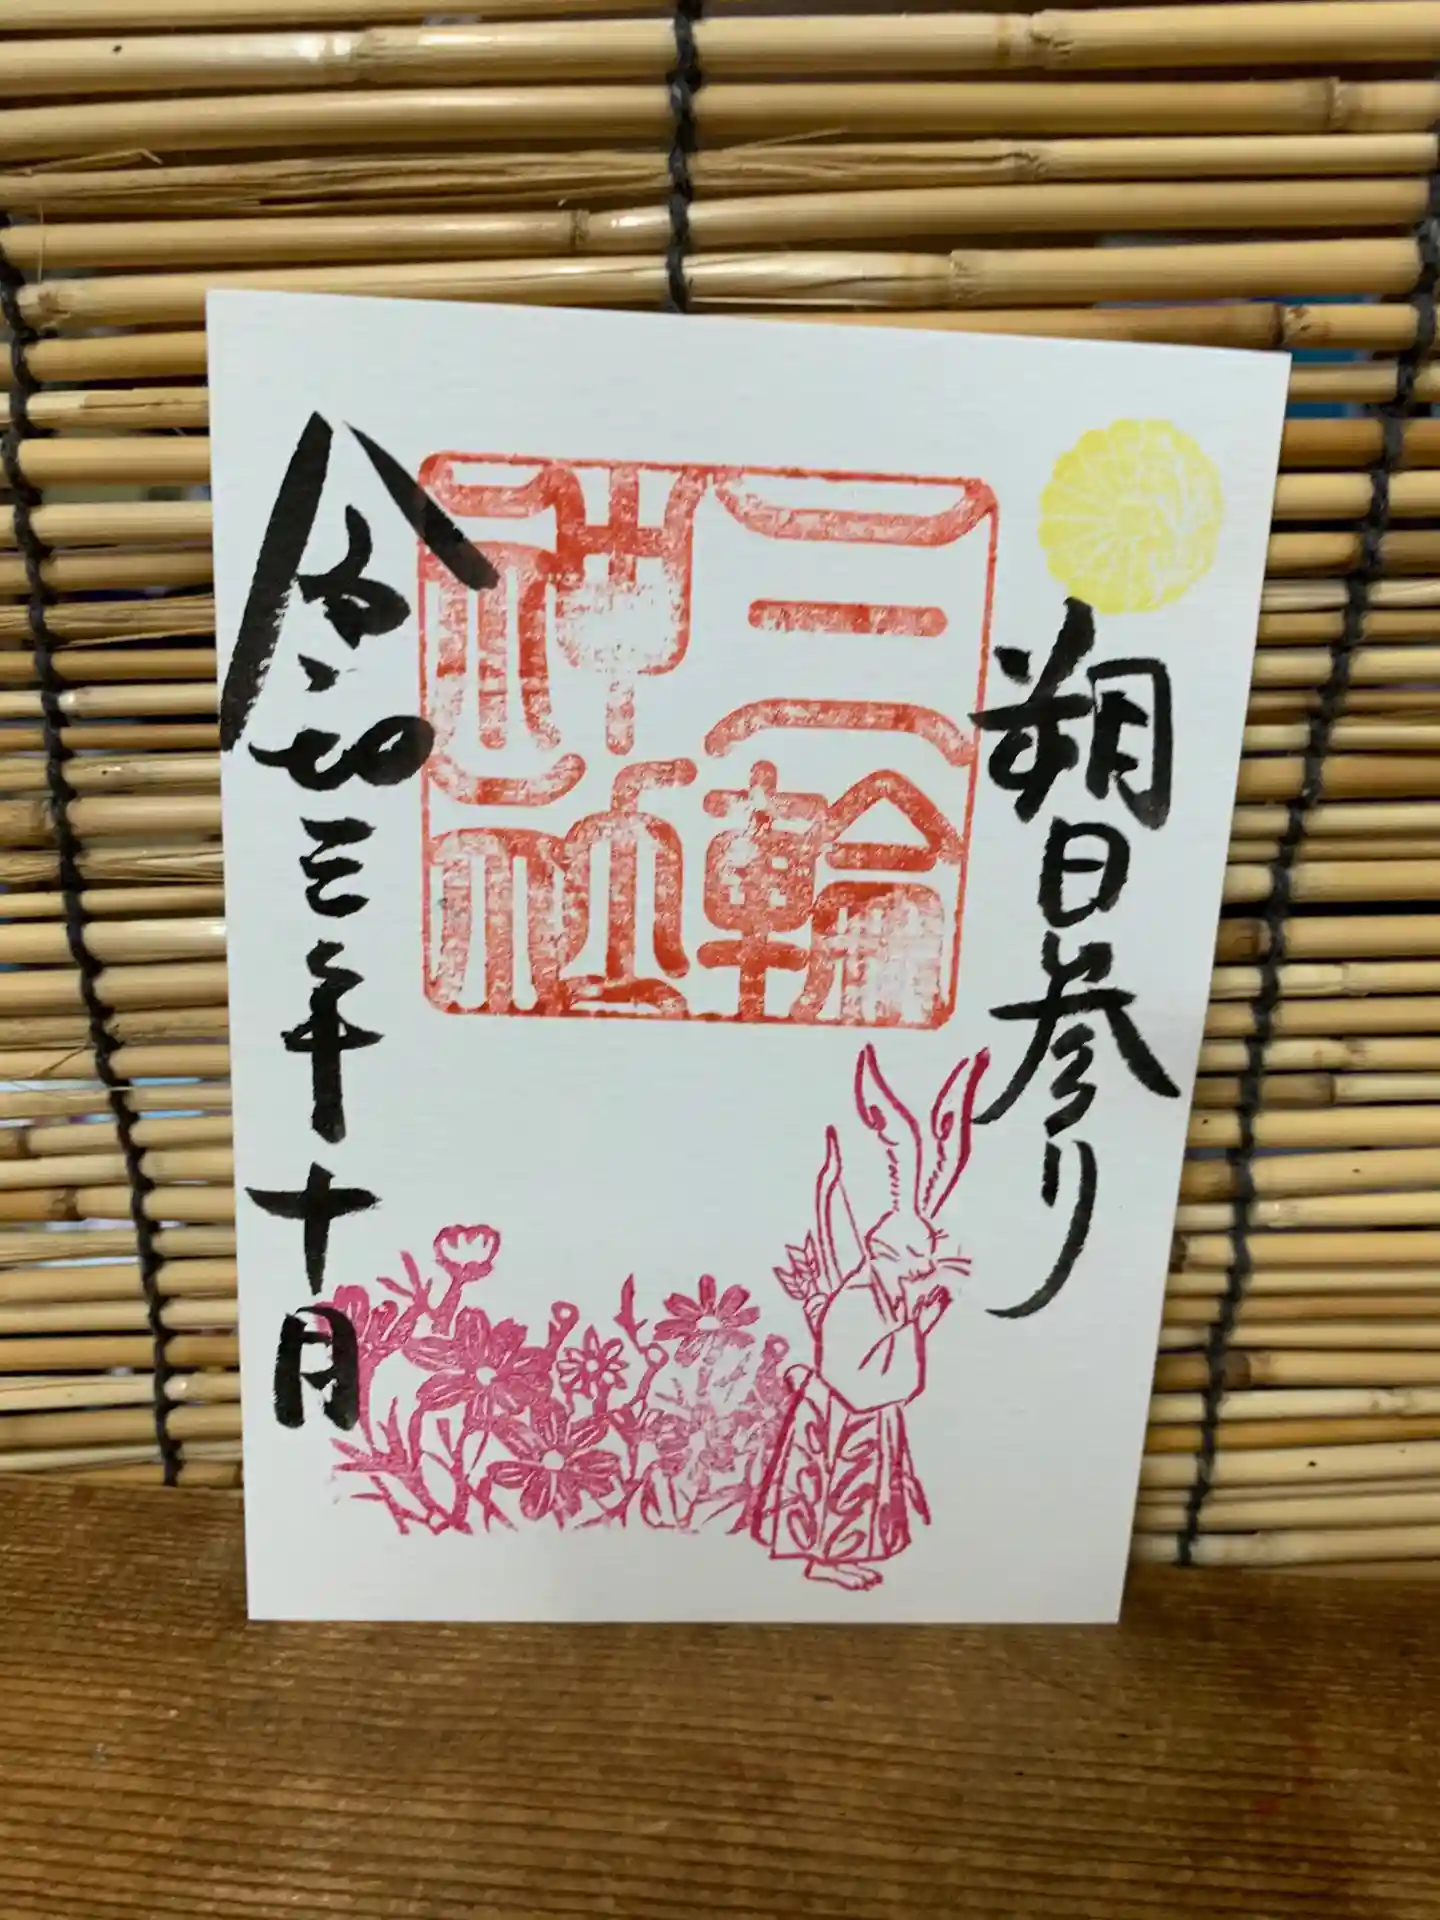 朔日参り
三輪
神社
令和三年十月